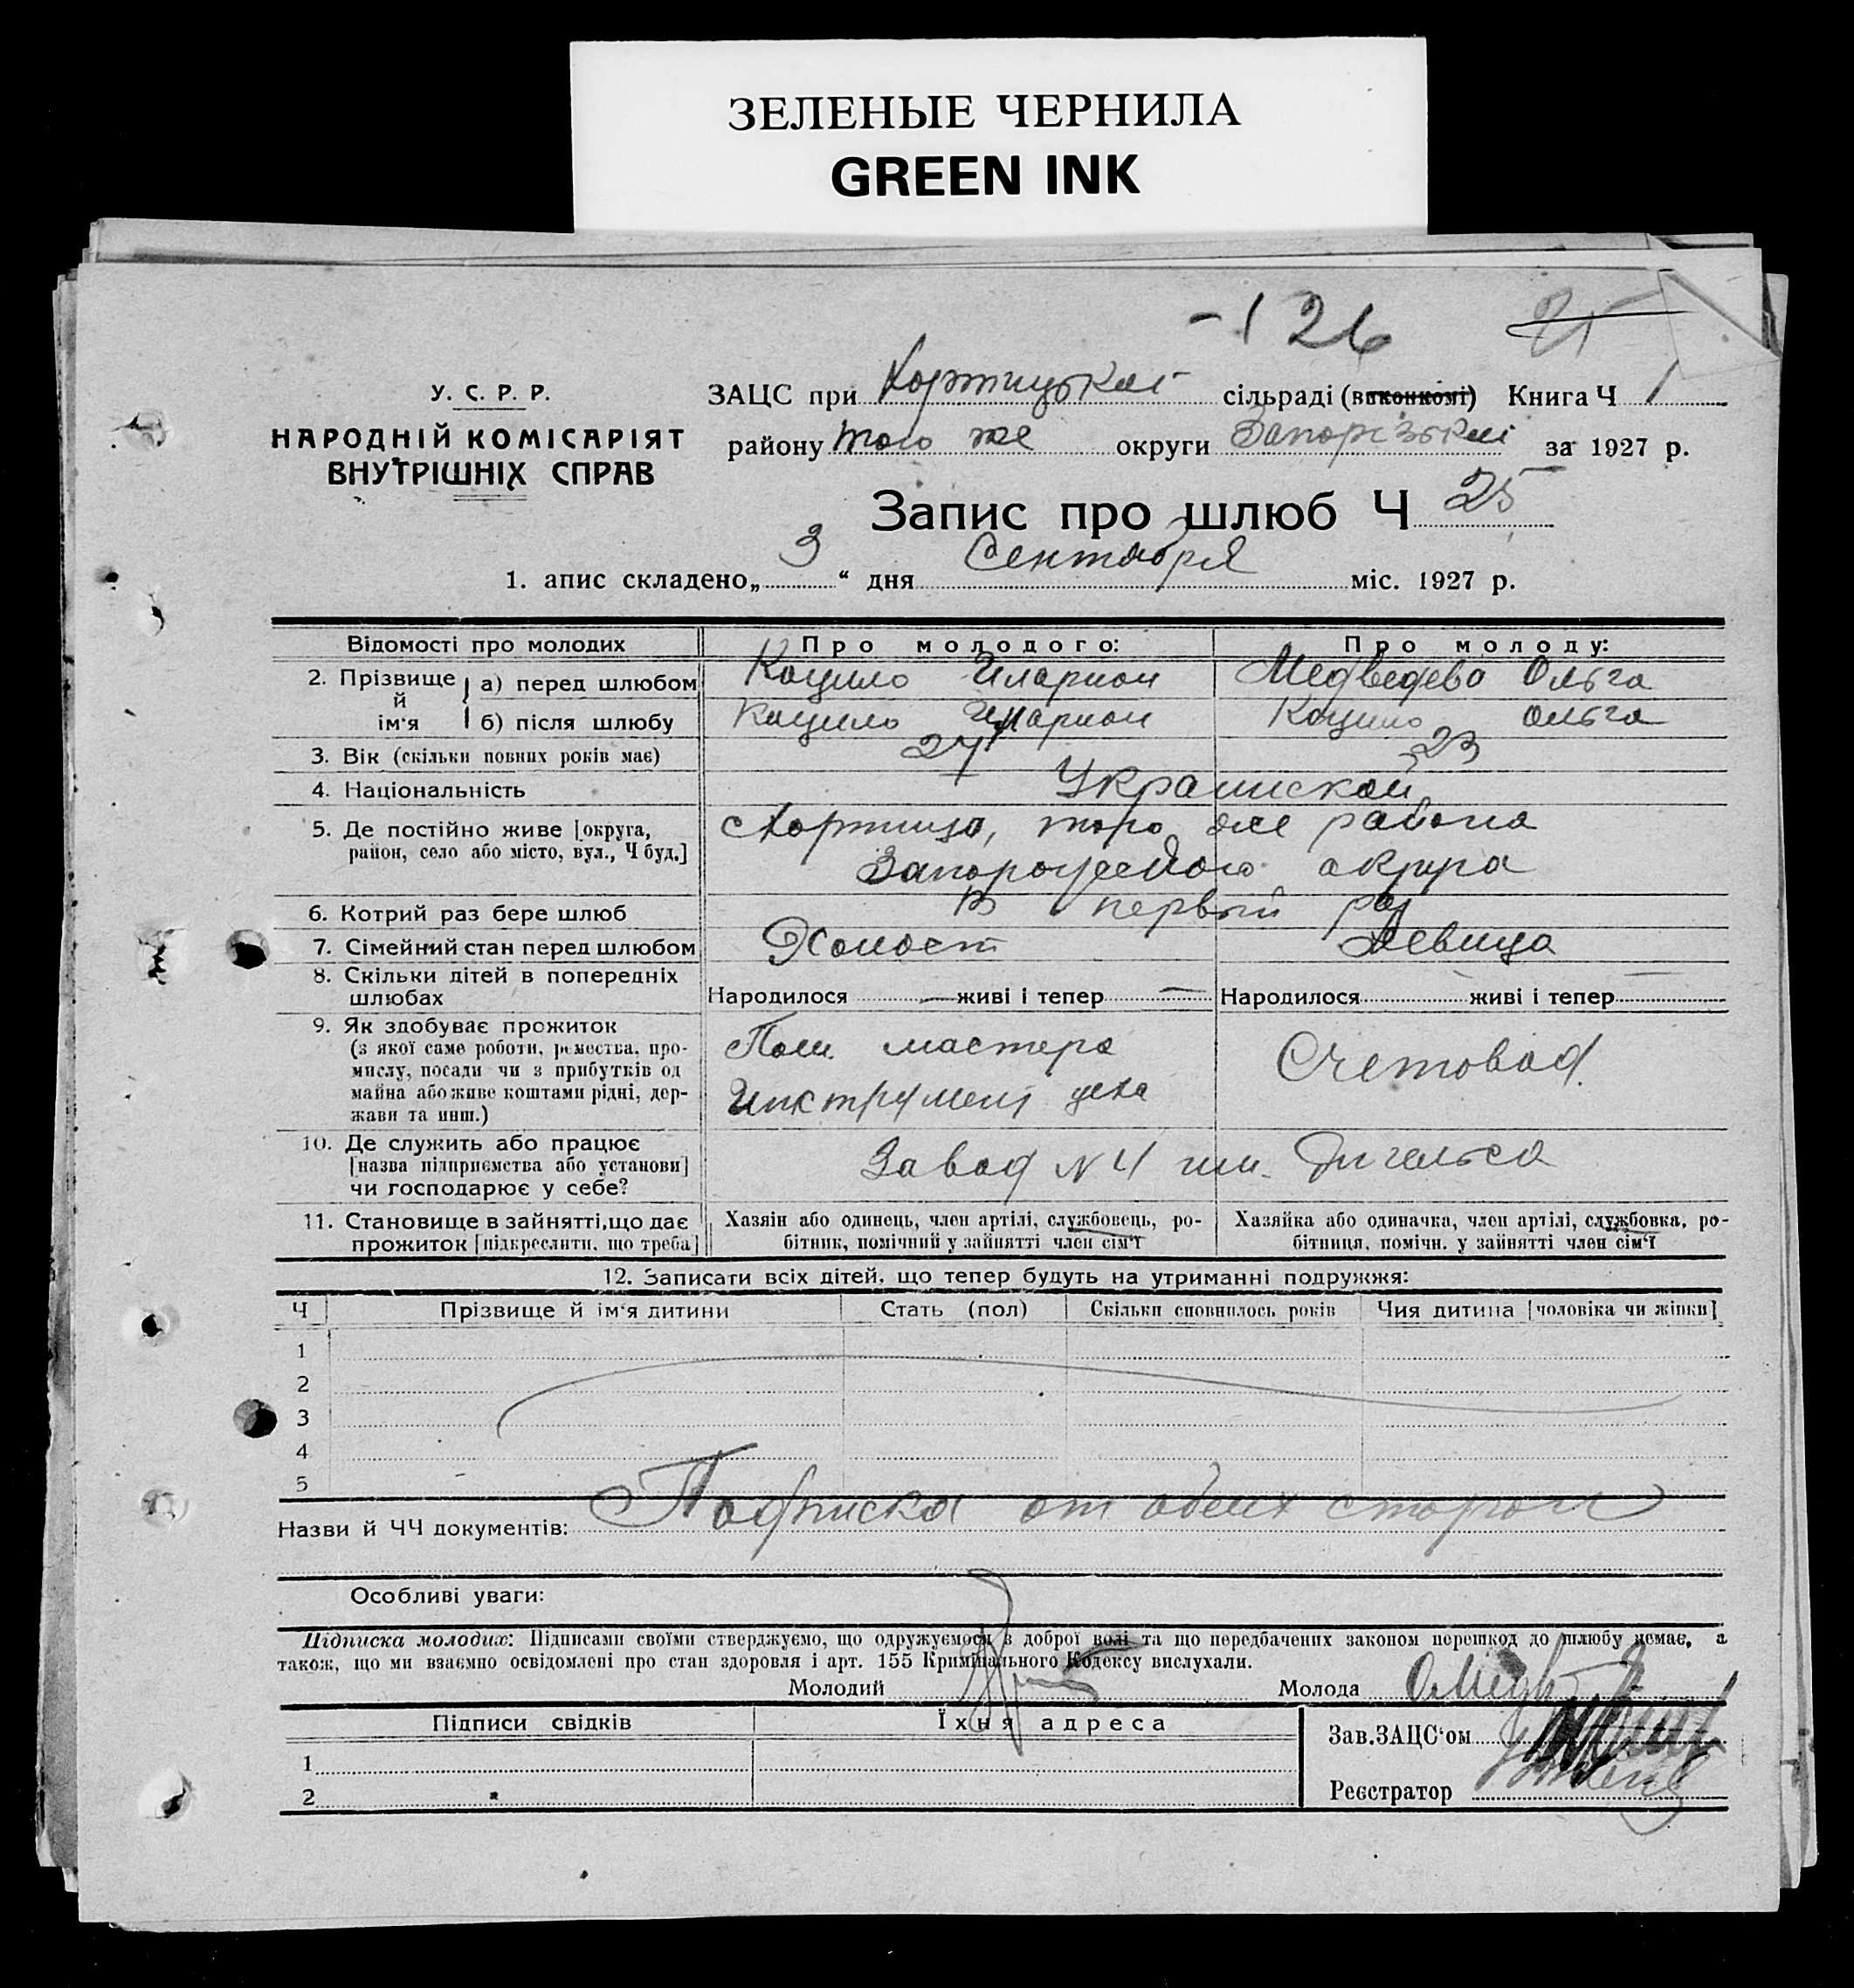 ЗЕЛЕНЫЕ ЧЕРНИЛА
GREEN INK
-126
У. С. Р. Р.
НАРОДНІЙ КОМІСАРІЯТ
ВНУТРІШНІХ СПРАВ
ЗАЦС при Хортицькій сільраді (виконкомі) Книга Ч 1
району того же округи Запорізькій за 1927 р.
Запис про шлюб Ч 25
1. апис складено „ 3 “ дня Сентября міс. 1927 р.
Відомості про молодих Про молодого: Про молоду:
2. Прізвище й ім‘я а) перед шлюбом Коцило Иларион Медведева Ольга
б) після шлюбу Коцило Иларион Коцило Ольга
3. Вік (скільки повних років має) 27 23
4. Національність Украинской
5. Де постійно живе [округа, район, село або місто, вул., Ч буд.] Хортица, того же района
Запорожского округа
6. Котрий раз бере шлюб В первый раз
7. Сімейний стан перед шлюбом Холост Девица
8. Скільки дітей в попередніх шлюбах Народилося — живі і тепер — Народилося живі і тепер —
9. Як здобуває прожиток
(з якої саме роботи, ремества, про-
мислу, посади чи з прибутків од
майна або живе коштами рідні, дер-
жави та инш.)
Пом. мастера
Инструмент цеха
Счетовод.
10. Де служить або працює
[назва підприємства або установи]
чи господарює у себе?
Завод N 4 им. Энгельса
11. Становище в зайнятті, що дає
прожиток [підкреслити, що треба]
Хазяін або одинець, член артілі, службовець, ро-
бітник, помічний у зайнятті член сім‘ї
Хазяйка або одиначка, член артілі, службовка, ро-
бітниця, помічн. у зайнятті член сім‘ї
12. Записати всіх дітей, що тепер будуть на утриманні подружжя:
Ч Прізвище й ім‘я дитини Стать (пол) Скільки сповнилось років Чия дитина [чоловіка чи жінки]
1
2
3
4
5
Назви й ЧЧ документів: Подписка от обеих сторон
Особливі уваги:
Підписка молодих: Підписами своїми стверджуємо, що одружуємося з доброї волі та що передбачених законом перешкод до шлюбу немає, а
також, що ми взаємно освідомлені про стан здоровля і арт. 155 Кримінального Кодексу вислухали.
Молодий Молода
Підписи свідків Їхня адреса
Зав.ЗАЦС‘ом
1
Реєстратор
2